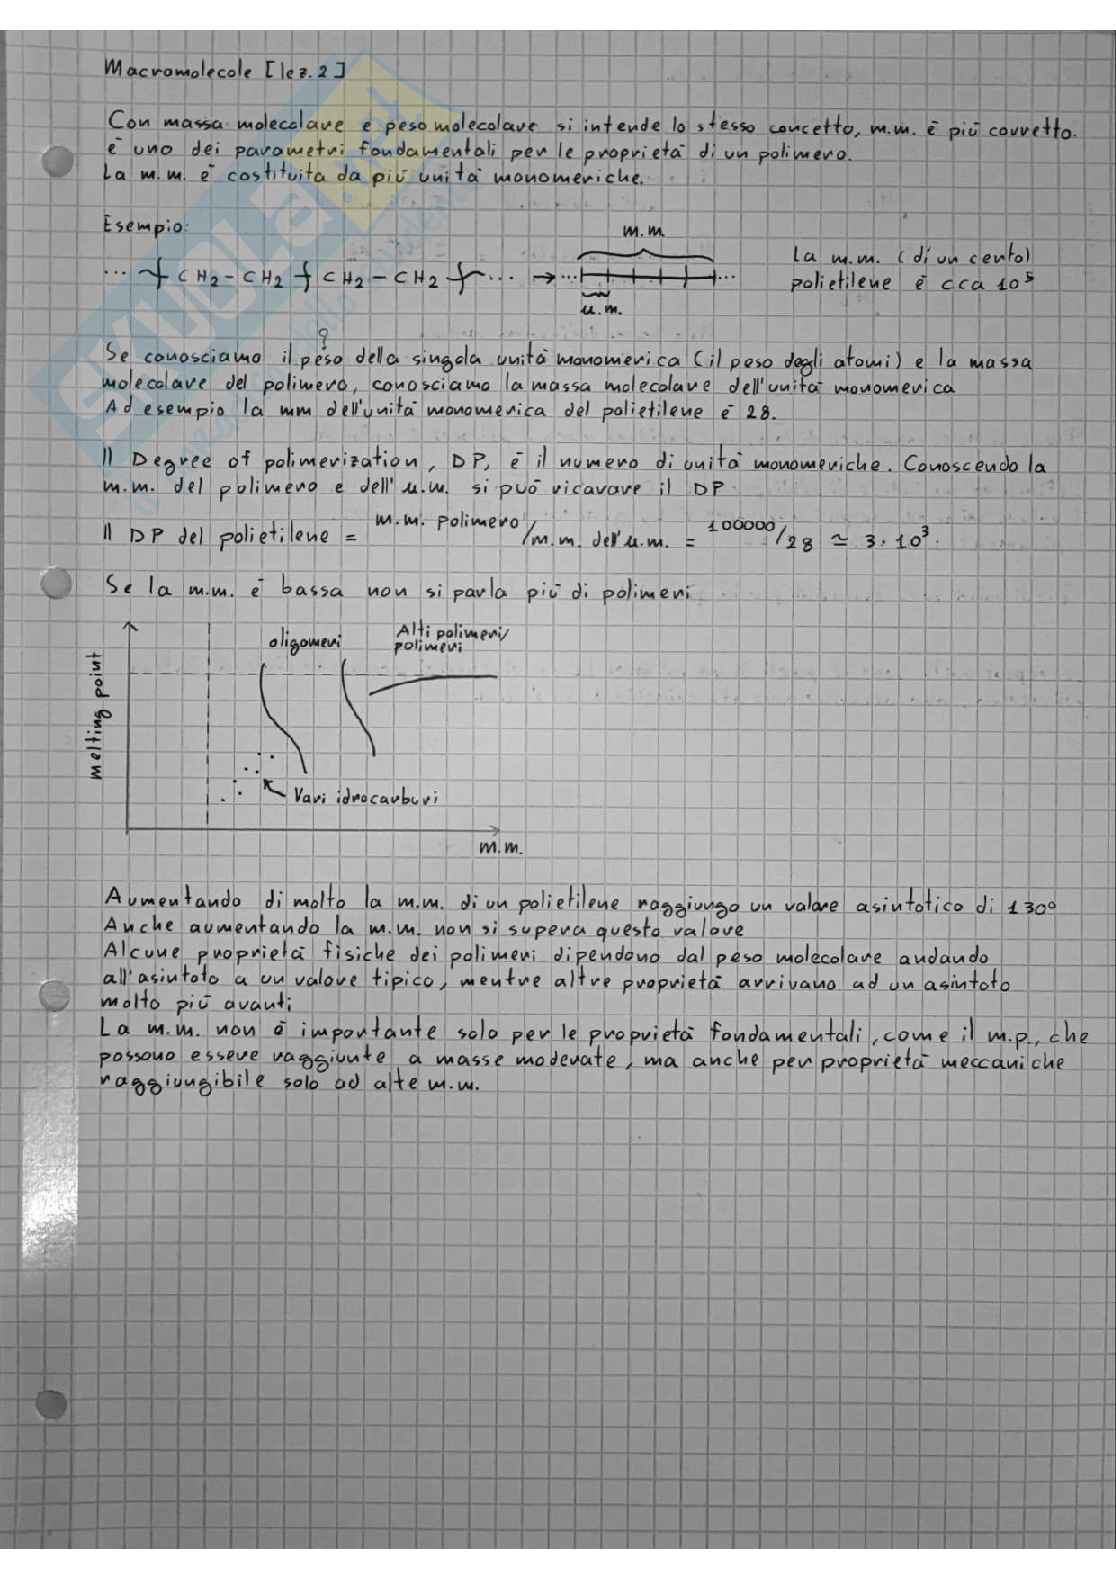 Macromolecole [lez.2]
Con massa molecolare e peso molecolare si intende lo stesso concetto, m.m. è più corretto.
è uno dei parametri fondamentali per le proprietà di un polimero.
La m.m. è costituita da più unità monomeriche.
Esempio:
m.m.
... CH2-CH2 CH2-CH2 ... → ... ...
u.m.
La m.m. (di un certo)
polietilene è cca 10^5
?
Se conosciamo il peso della singola unità monomerica (il peso degli atomi) e la massa
molecolare del polimero, conosciamo la massa molecolare dell'unità monomerica
Ad esempio la mm dell'unità monomerica del polietilene è 28.
Il Degree of polimerization, DP, è il numero di unità monomeriche. Conoscendo la
m.m. del polimero e dell'u.m. si può ricavare il DP.
Il DP del polietilene = m.m. polimero/m.m. dell'u.m. = 100000/28 ≃ 3·10^3.
Se la m.m. è bassa non si parla più di polimeri
oligomeri
Alti polimeri/
polimeri
melting point
Vari idrocarburi
m.m.
Aumentando di molto la m.m. di un polietilene raggiungo un valore asintotico di 130°
Anche aumentando la m.m. non si supera questo valore
Alcune proprietà fisiche dei polimeri dipendono dal peso molecolare andando
all'asintoto a un valore tipico, mentre altre proprietà arrivano ad un asintoto
molto più avanti
La m.m. non è importante solo per le proprietà fondamentali, come il m.p., che
possono essere raggiunte a masse moderate, ma anche per proprietà meccaniche
raggiungibile solo ad alte m.m.